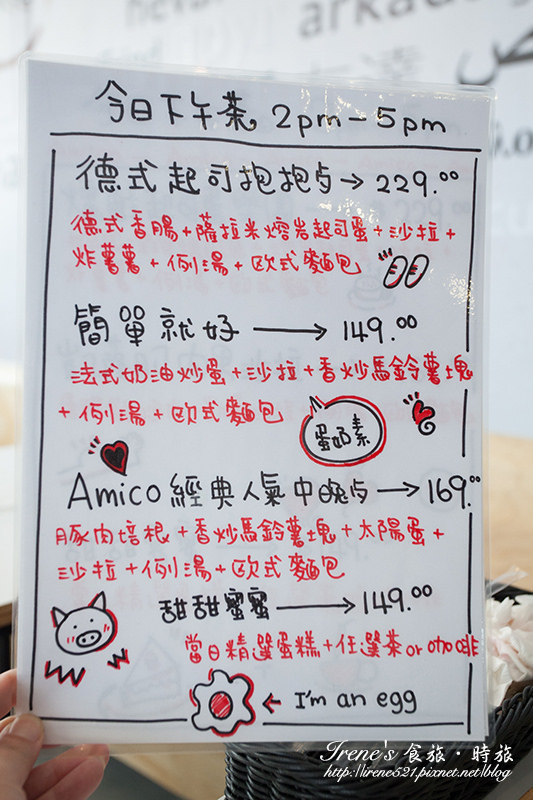 今日下午茶 2pm-5pm
德式起司抱抱点→229.00
德式香腸+薩拉米熔岩起司蛋+沙拉+
炸薯薯+例湯+欧式麵包
簡單就好→149.00
法式奶油炒蛋+沙拉+香炒馬鈴薯塊
+例湯+欧式麵包
蛋奶素
Amico經典人氣中晚点→169.00
豚肉培根+香炒馬鈴薯塊+太陽蛋+
沙拉+例湯+欧式麵包
甜甜蜜蜜→149.00
當日精選蛋糕+任選茶or咖啡
←I'm an egg
Irene's 食旅·時旅
http://irene521.pixnet.net/blog